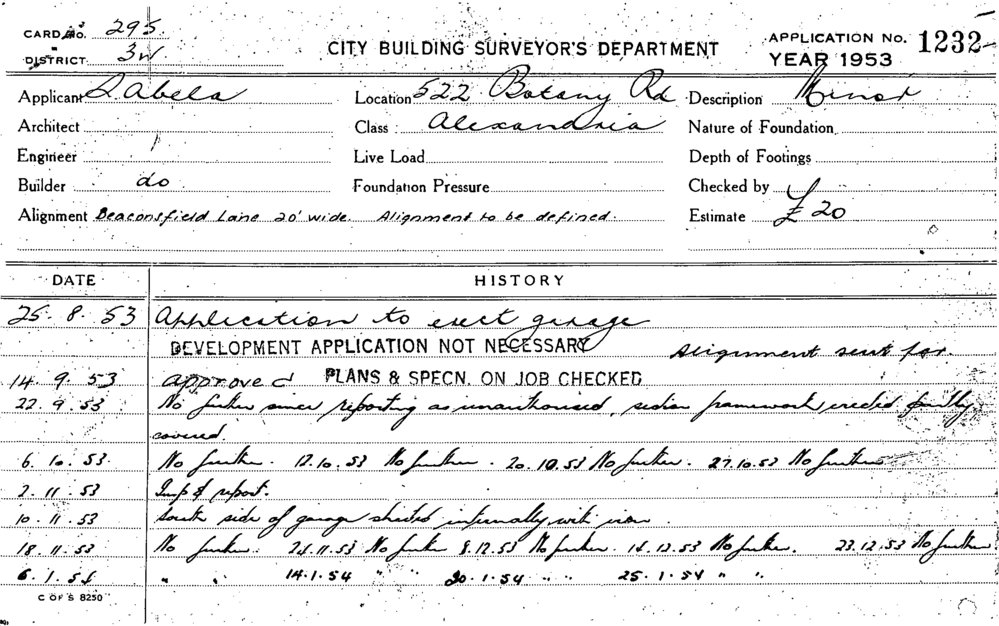 CARD No. 295.
DISTRICT 3W.
CITY BUILDING SURVEYOR'S DEPARTMENT
APPLICATION No. 1232
YEAR 1953
Applicant S. Abela Location 522 Botany Rd Description Minor
Architect Class Alexandria Nature of Foundation
Engineer Live Load Depth of Footings
Builder do Foundation Pressure Checked by
Alignment Beaconsfield Lane 20' wide. Alignment to be defined. Estimate £20
DATE HISTORY
25.8.53 Application to erect garage
DEVELOPMENT APPLICATION NOT NECESSARY Alignment sent for.
14.9.53 Approved PLANS & SPECN. ON JOB CHECKED
22.9.53 No further since reporting as unauthorised, section framework erected partly
covered.
6.10.53 No further. 12.10.53 No further. 20.10.53 No further. 27.10.53 No further
2.11.53 Insp & report.
10.11.53 South side of garage sheeted internally with iron.
18.11.53 No further. 24.11.53 No further 8.12.53 No further. 16.12.53 No further. 23.12.53 No further
6.1.54 " " 14.1.54 " " 20.1.54 " " 25.1.54 " "
C OF S 8250